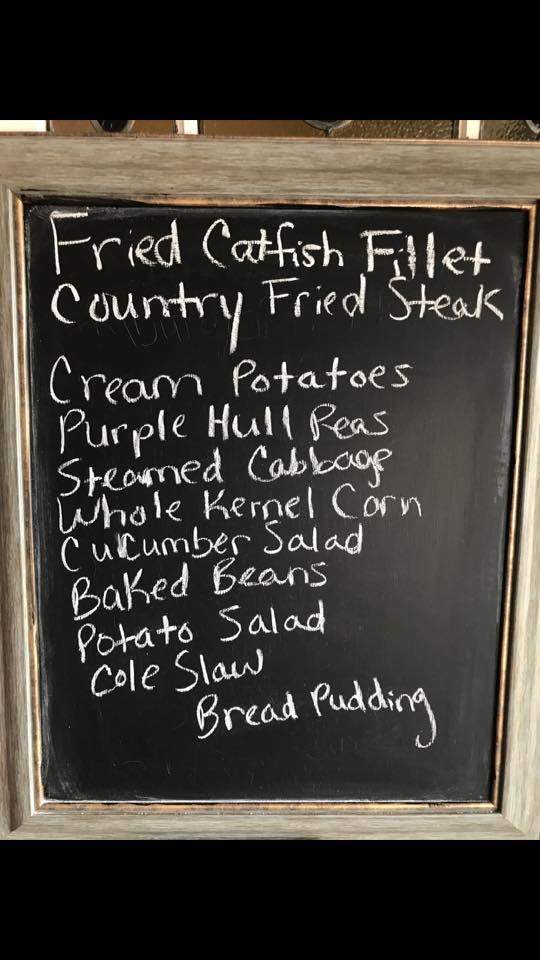 Fried Catfish Fillet
Country Fried Steak
Cream Potatoes
Purple Hull Peas
Steamed Cabbage
Whole Kernel Corn
Cucumber Salad
Baked Beans
Potato Salad
Cole Slaw
Bread Pudding